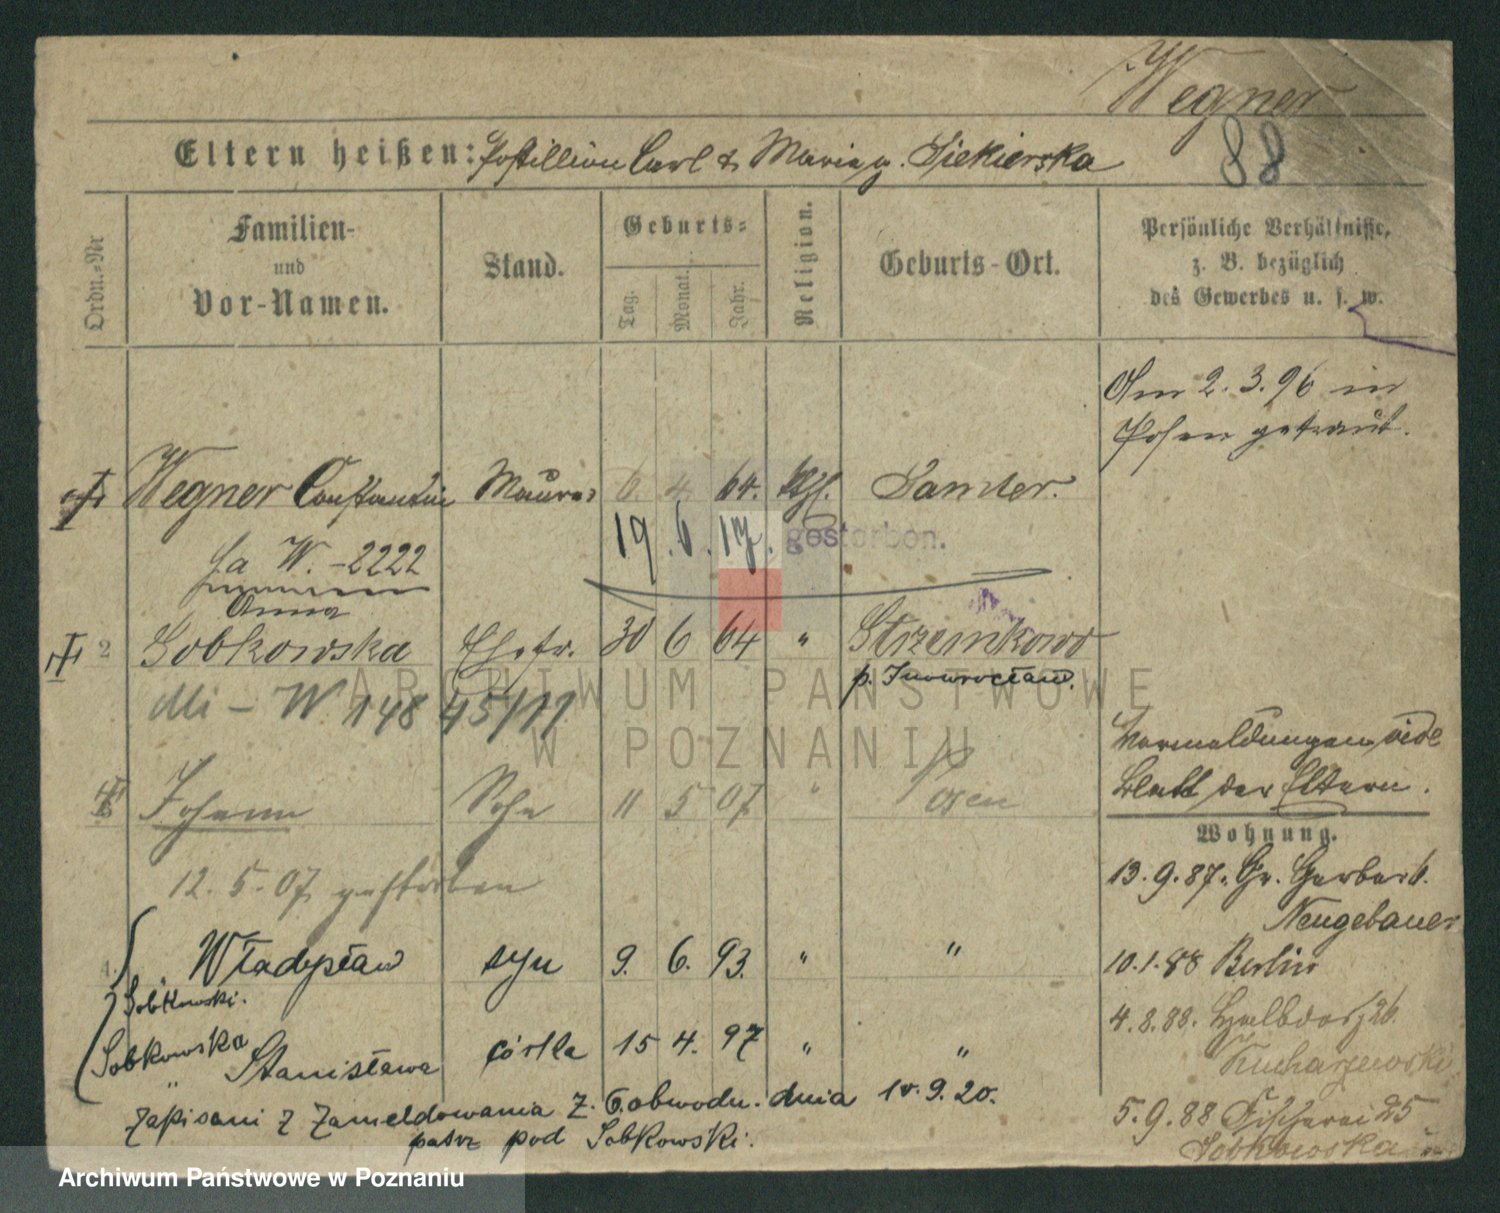 Wegner
88
Eltern heißen: Postillion Carl & Maria g. Siekierska
Ordn.-Nr
Familien-
und
Vor-Namen.
Stand.
Geburts-
Tag.
Monat.
Jahr.
Religion.
Geburts-Ort.
Persönliche Verhältnisse,
z. B. bezüglich
des Gewerbes u. s. w.
Am 2. 3. 96 in
Posen getraut.
Wegner Constantin Maurer 6. 4. 64. kth. Samter.
19. 6. 17. gestorben.
fa W. - 2222
Anna
2 Sobkowska Ehefr. 30 6 64 " Strzemkowo
p. Inowrocław.
Mi - W 148 45/11
Vermeldungen vide
Blatt der Eltern.
3 Johann Sohn 11 5 07 " Posen
12. 5. 07 gestorben
Wohnung.
13. 9. 87. Gr. Gerberst. 6.
Neugebauer
4. Władysław syn 9. 6. 93. " "
Sobkowski.
10. 1. 88 Berlin
4. 8. 88. Halbdorf 26.
Sobkowska Stanisława córka 15 4. 97 " "
Kucharzewski
Zapisani z Zameldowania z. 6. obwodu. dnia 10. 9. 20.
patrz pod Sobkowski.
5. 9. 88 Fischerei 25
Sobkowska
ARCHIWUM PAŃSTWOWE
W POZNANIU
Archiwum Państwowe w Poznaniu